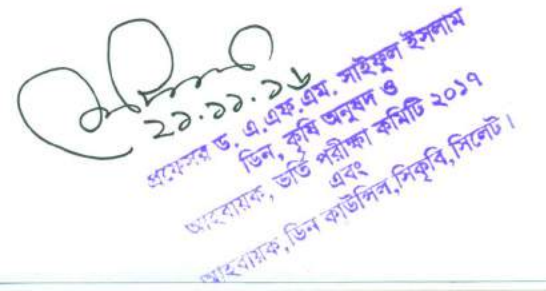 ২১.১১.১৬
প্রফেসর ড. এ.এফ.এম. সাইফুল ইসলাম
ডিন, কৃষি অনুষদ ও
আহবায়ক, ভর্তি পরীক্ষা কমিটি ২০১৭
এবং
আহবায়ক, ডিন কাউন্সিল, সিকৃবি, সিলেট।